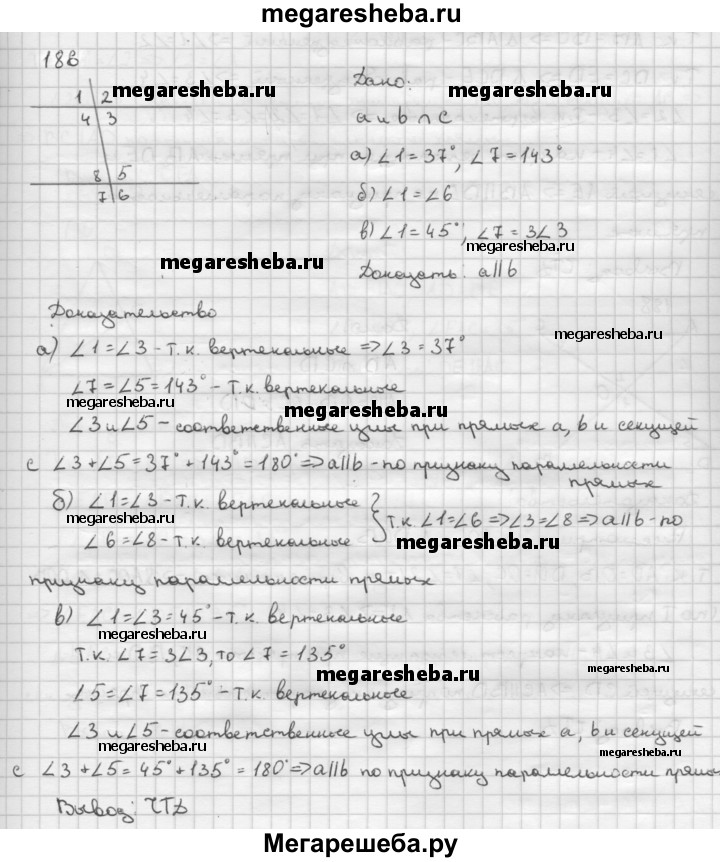 megaresheba.ru
188
1 2
megaresheba.ru
4 3
8 5
7 6
Дано:
megaresheba.ru
a и b ∩ c
а) ∠1 = 37°, ∠7 = 143°
б) ∠1 = ∠6
в) ∠1 = 45°, ∠7 = 3∠3
megaresheba.ru
Доказать: a||b
megaresheba.ru
Доказательство
megaresheba.ru
а) ∠1 = ∠3 - т.к. вертекальные => ∠3 = 37°
∠7 = ∠5 = 143° - т.к. вертекальные
megaresheba.ru
megaresheba.ru
∠3 и ∠5 - соответственные углы при прямых a, b и секущей
c ∠3 + ∠5 = 37° + 143° = 180° => a||b - по признаку параллельности
прямых
б) ∠1 = ∠3 - т.к. вертекальные
megaresheba.ru
∠6 = ∠8 - т.к. вертекальные
т.к. ∠1 = ∠6 => ∠3 = ∠8 => a||b - по
megaresheba.ru
признаку параллельности прямых
в) ∠1 = ∠3 = 45° - т.к. вертекальные
megaresheba.ru
т.к. ∠7 = 3∠3, то ∠7 = 135°
megaresheba.ru
megaresheba.ru
∠5 = ∠7 = 135° - т.к. вертекальные
∠3 и ∠5 - соответственные углы при прямых a, b и секущей
megaresheba.ru
megaresheba.ru
c ∠3 + ∠5 = 45° + 135° = 180° => a||b по признаку параллельности прямы
Вывод: ЧТД
Мегарешеба.ру